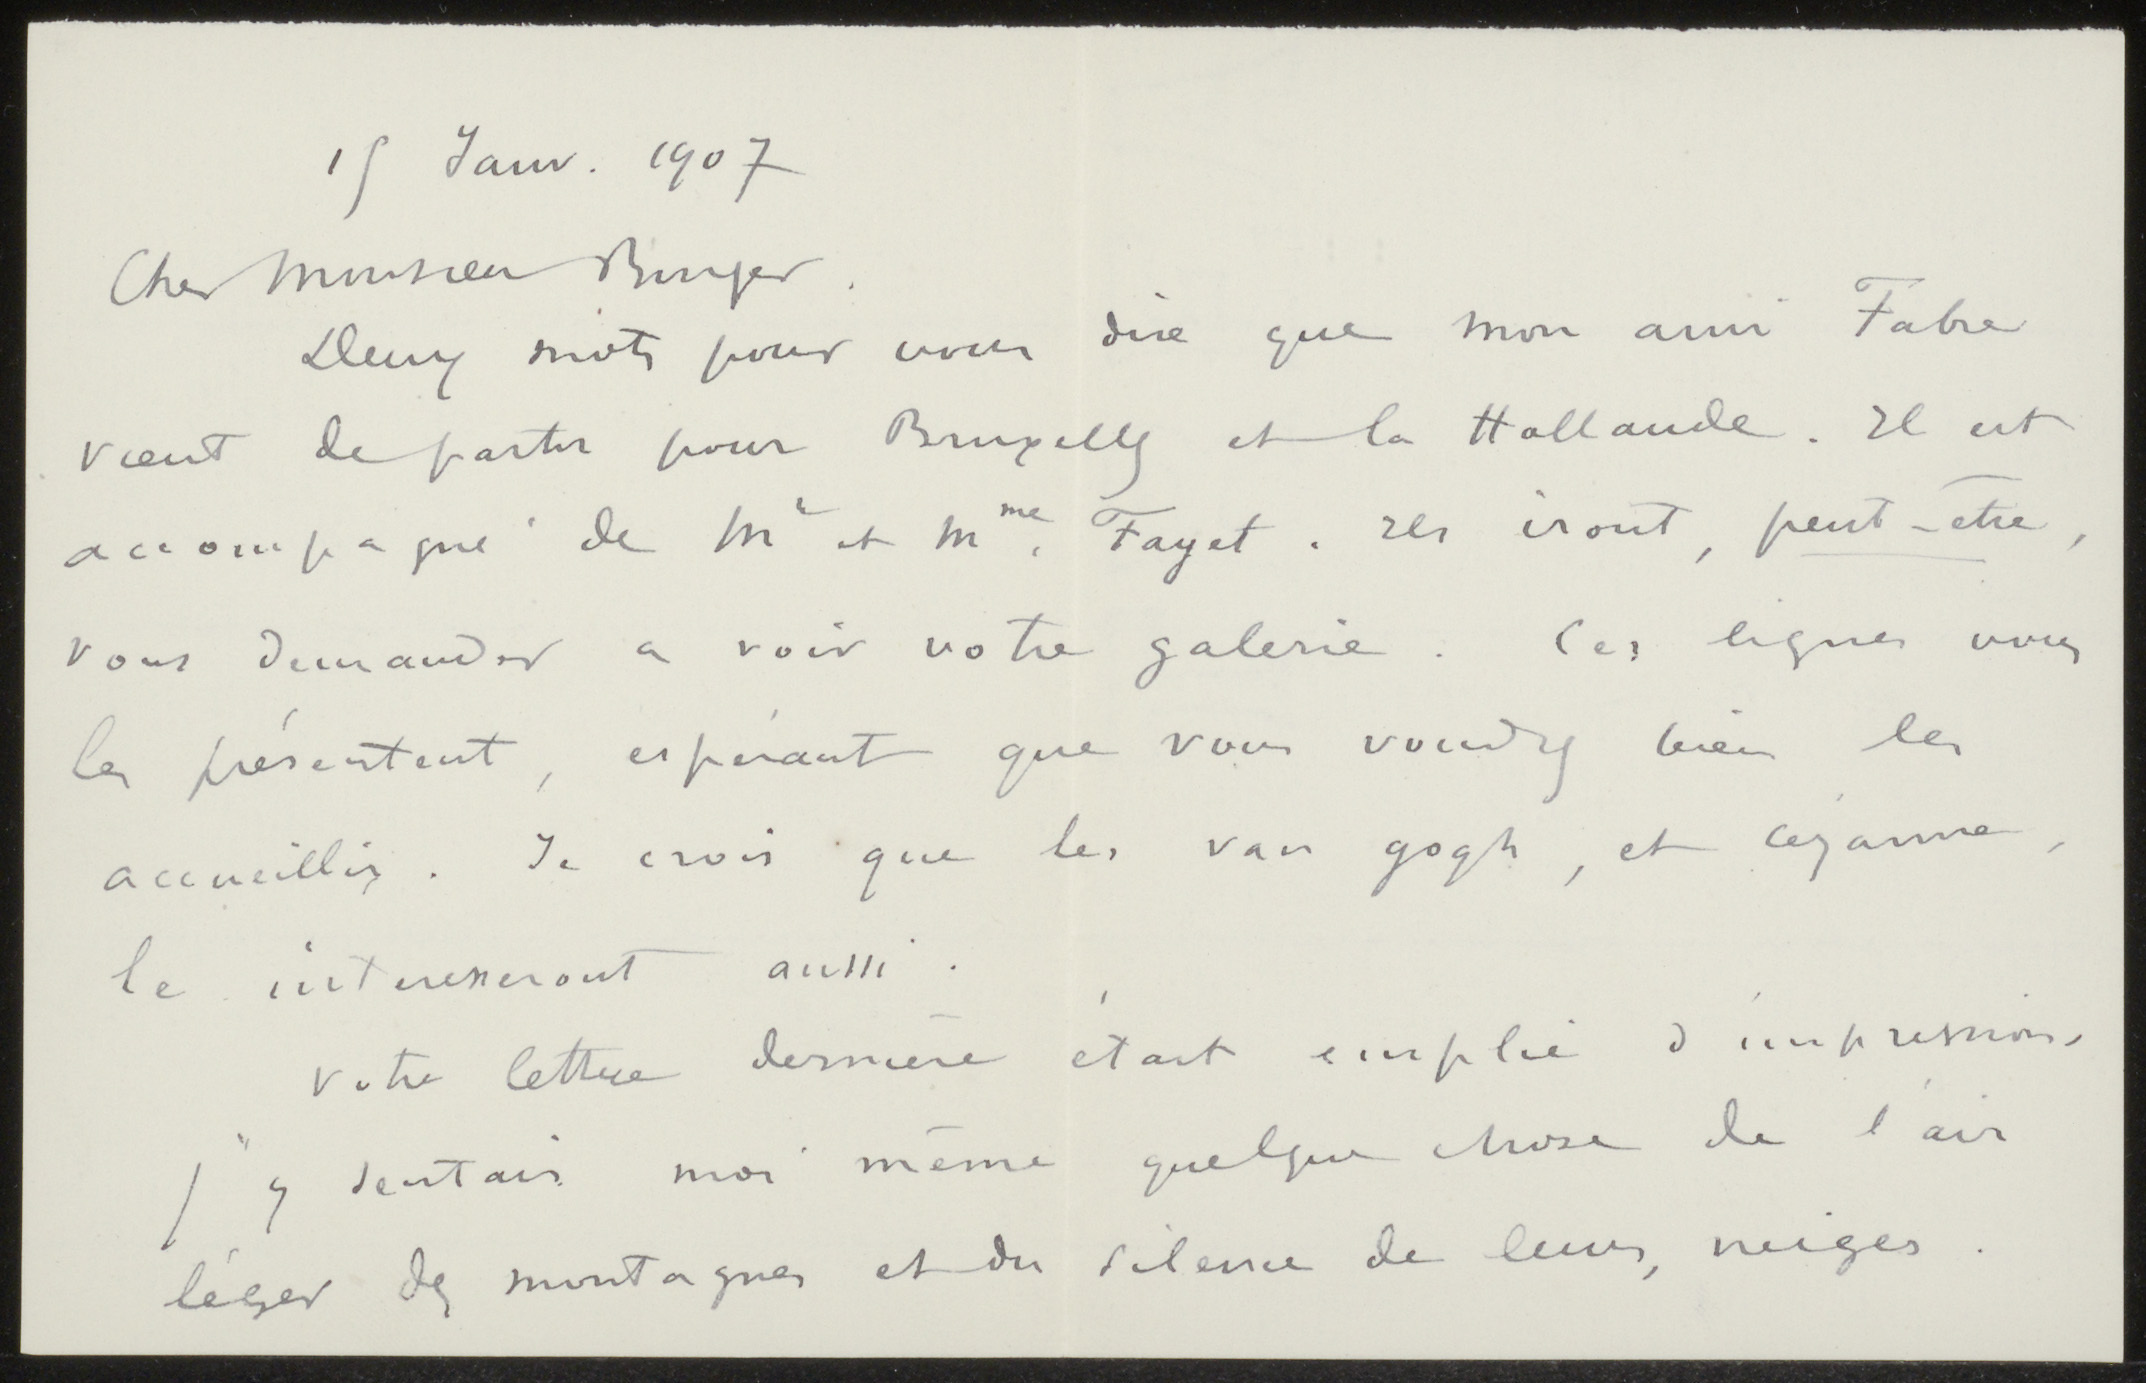 15 Janv. 1907
Cher Monsieur Bonger.
Deux mots pour vous dire que mon ami Fabre
vient de partir pour Bruxelles et la Hollande. Il est
accompagné de Mr et Mme. Fayet. Ils iront, peut-etre,
vous demander a voir votre galerie. Ces lignes vous
les présentent, espérant que vous voudrez bien les
accueillir. Je crois que les van gogh, et cézanne,
le interesseront aussi.
Votre lettre dernière était emplie d'impressions
j'y sentais moi même quelque chose de l'air
léger des montagnes et du silence de leurs, neiges.